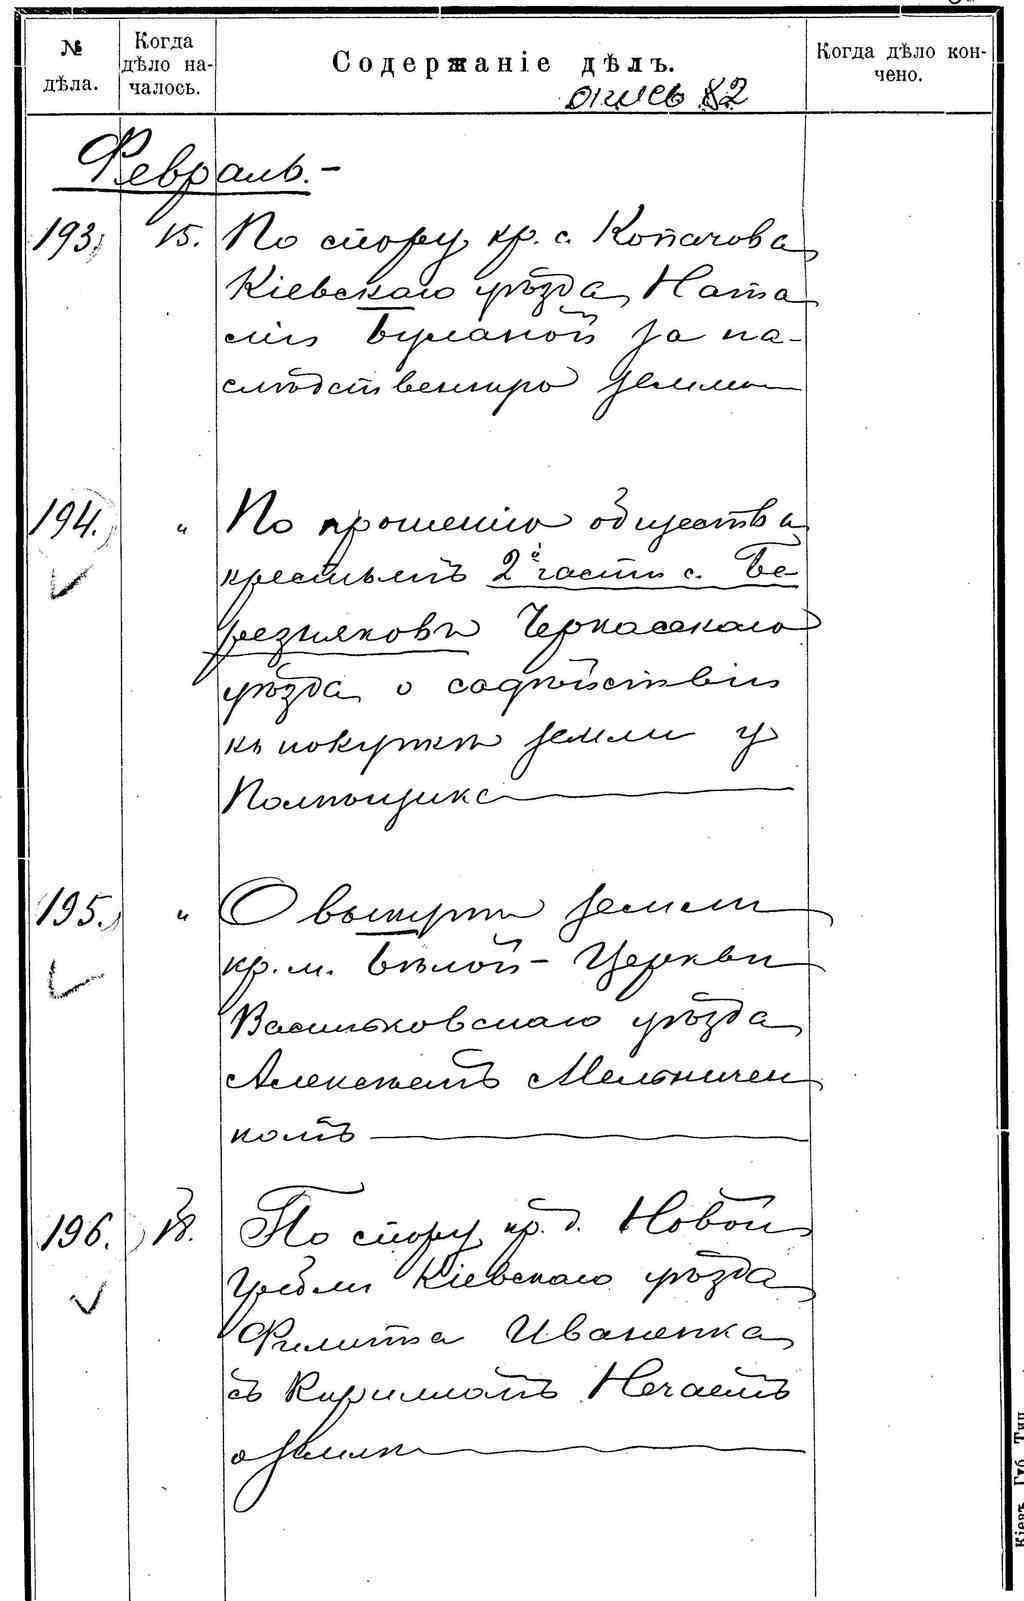 № дѣла.
Когда дѣло началось.
Содержаніе дѣлъ.
Когда дѣло кончено.
опись 82
Февраль.-
193. 15. По спору кр. с. Копачова
Кіевскаго уѣзда, Ната
ліи Буланой за на-
слѣдственную землю
194. " По прошенію общества
крестьянъ 2й части с. Бе-
резняковъ Черкасскаго
уѣзда о содѣйствіи
къ покупкѣ земли у
Помѣщика
195. " О выкупѣ земли
кр. м. Бѣлой-Церкви
Васильковскаго уѣзда
Алексѣемъ Мельничен
комъ
196. 18. По спору кр. д. Новой
Гребли Кіевскаго уѣзда
Филиппа Иваненка
съ Кирилломъ Нечаемъ
о землѣ
Кіевъ, Губ. Тип.